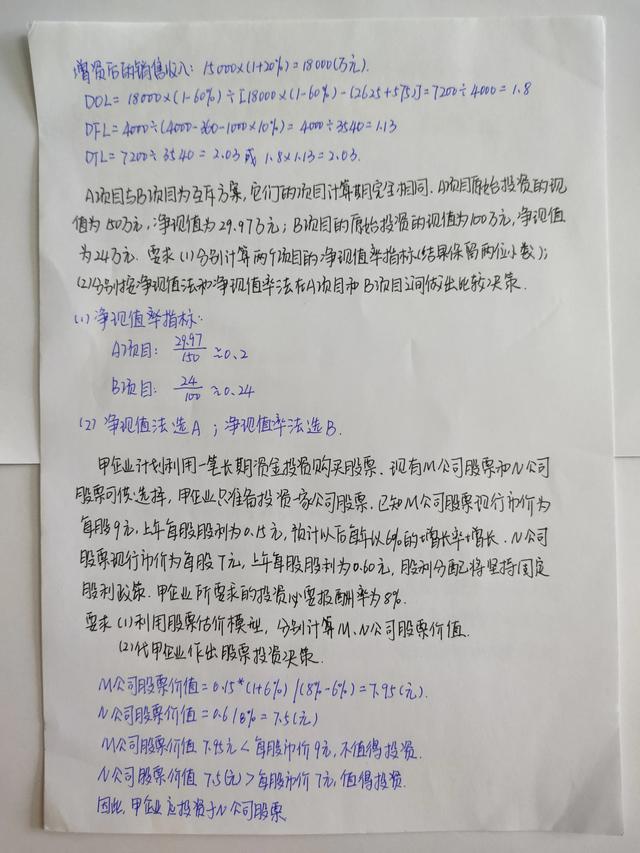 增资后的销售收入: 15000×(1+20%)=18000(万元).
DOL=18000×(1-60%)÷[18000×(1-60%)-(2625+575)]=7200÷4000=1.8
DFL=4000÷(4000-360-1000×10%)=4000÷3540=1.13
DTL=7200÷3540=2.03 或 1.8×1.13=2.03.
A项目与B项目为互斥方案,它们的项目计算期完全相同.A项目原始投资的现
值为150万元,净现值为29.97万元;B项目的原始投资的现值为100万元,净现值
为24万元. 要求 (1)分别计算两个项目的净现值率指标(结果保留两位小数);
(2)分别按净现值法和净现值率法在A项目和B项目之间做出比较决策.
(1) 净现值率指标:
A项目: 29.97/150 ≈0.2
B项目: 24/100 ≈0.24
(2) 净现值法选A ;净现值率法选B.
甲企业计划利用一笔长期资金投资购买股票. 现有M公司股票和N公司
股票可供选择, 甲企业只准备投资一家公司股票. 已知M公司股票现行市价为
每股9元,上年每股股利为0.15元, 预计以后每年以6%的增长率增长. N公司
股票现行市价为每股7元,上年每股股利为0.60元, 股利分配将坚持固定
股利政策. 甲企业所要求的投资必要报酬率为8%.
要求 (1)利用股票估价模型, 分别计算M、N公司股票价值.
(2)代甲企业作出股票投资决策.
M公司股票价值=0.15*(1+6%)/(8%-6%)=7.95(元).
N公司股票价值=0.6/8%=7.5(元)
M公司股票价值 7.95元<每股市价9元,不值得投资.
N公司股票价值 7.5(元)>每股市价7元,值得投资.
因此,甲企业应投资于N公司股票